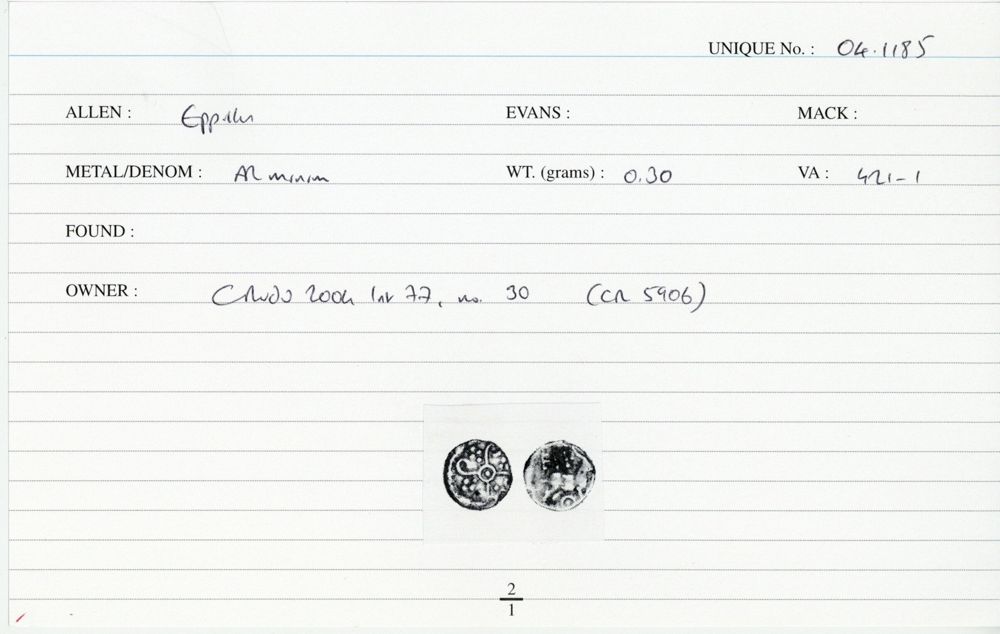 UNIQUE No. : 04.1185
ALLEN : Eppillus EVANS : MACK :
METAL/DENOM : AR minim WT. (grams) : 0.30 VA : 421-1
FOUND :
OWNER : 2004 77, no. 30 (CR 5906)
2
1